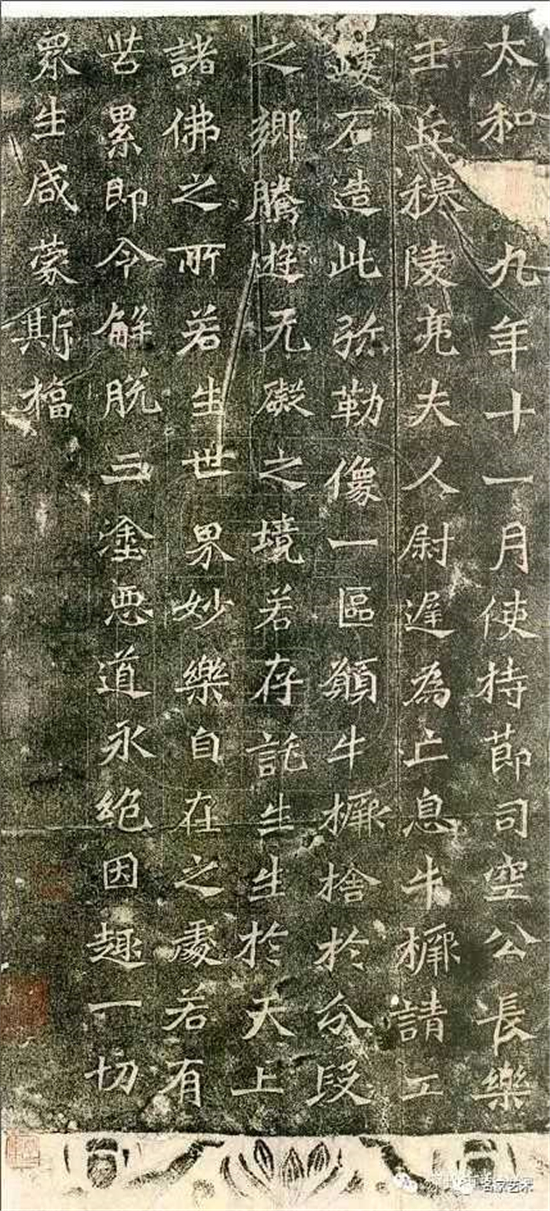 太和九年十一月使持節司空公長樂
王丘穆陵亮夫人尉遲為亡息牛橛請工
鏤石造此弥勒像一區願牛橛捨於分段
之鄉騰遊无礙之境若存託生生於天上
諸佛之所若生世界妙樂自在之處若有
苦累即令解脱三塗惡道永絶因趣一切
眾生咸蒙斯福
名家艺术